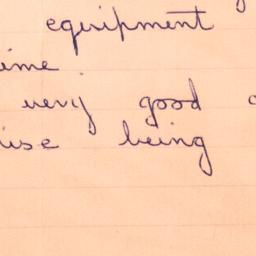 equipment
ime
very good
ise being